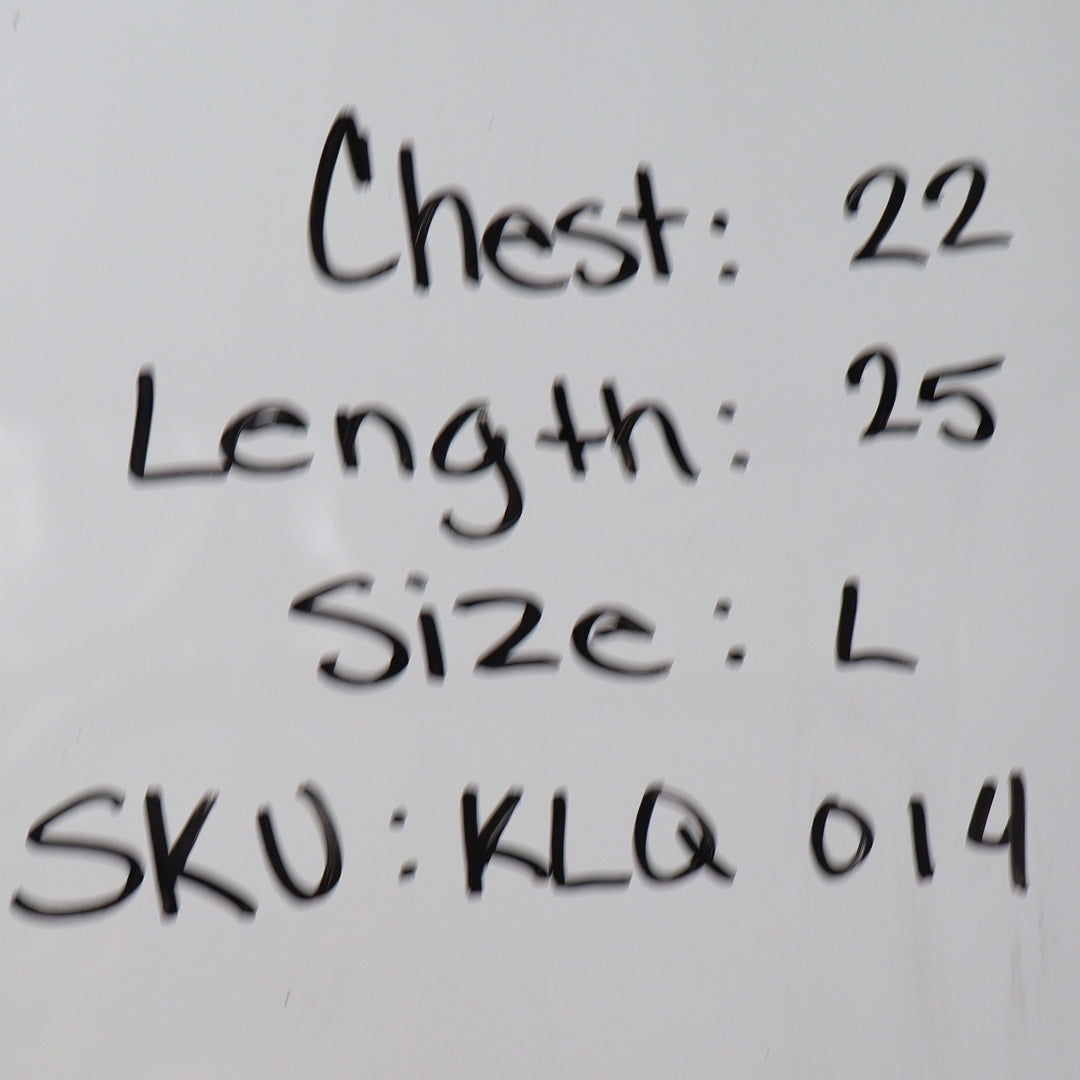 Chest: 22
Length: 25
Size: L
SKU: KLQ 014